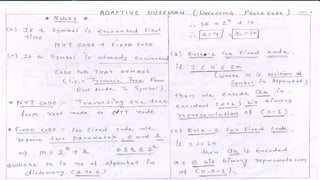 ADAPTIVE HUFFMAN (ENCODING PROCEDURE)
* RULES *
(1) If a Symbol is encounted First
time
NYT CODE + FIXED CODE
(2) If a Symbol is already encountered
CODE FOR THAT SYMBOL
(i.e., Traverse Tree From
Root Node To Symbol).
* NYT CODE :- Traversing the tree
from root node to NYT Node
* FIXED CODE :- For fixed code we
require two parameters e and r
⇒ m = 2^e + r  0 ≤ r ≤ 2^e
where m is no of alphabet in
dictionary. (A to Z)
∴ 26 = 2^4 + 10
∴ e=4, r=10
(1) Rule-1 For Fixed code.
is 1 ≤ k ≤ 2r
(Where k is position of
Symbol in Alphabet)
then we encode as
encoded (e+1) bit binary
representation of (k-1).
(2) Rule-2 For Fixed code
is k > 2r
then is encoded
as e bit binary representation
of (k-r-1).